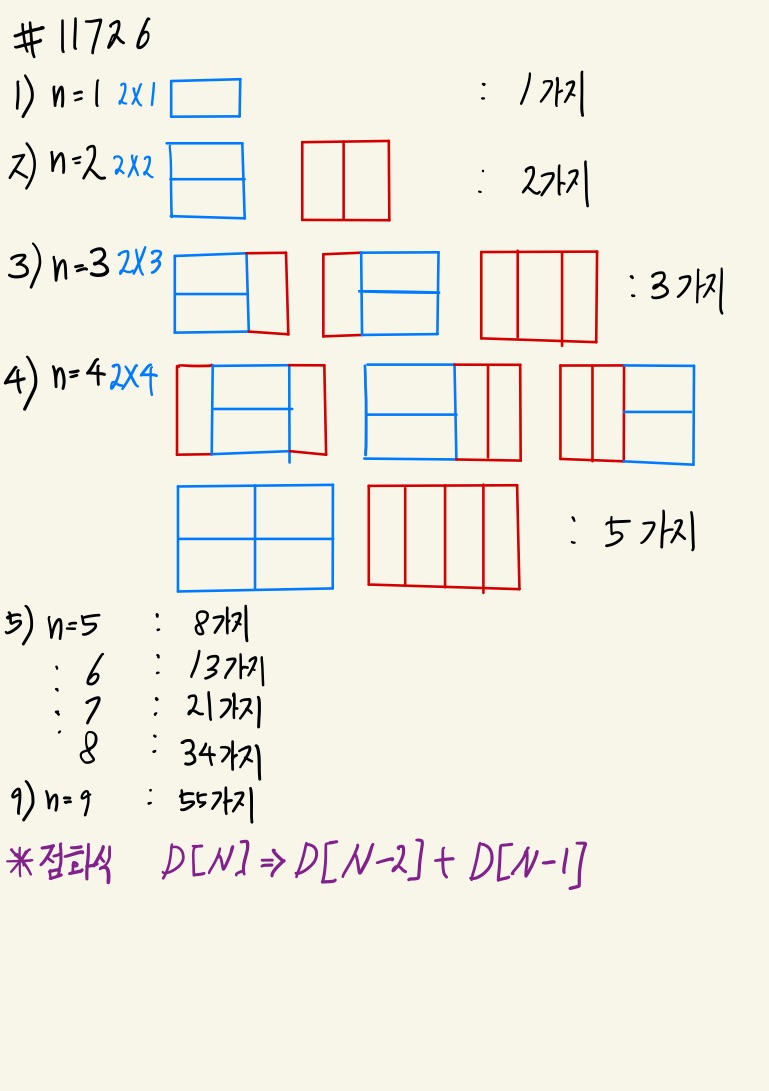 # 11726
1) n=1 2x1 : 1가지
2) n=2 2x2 : 2가지
3) n=3 2x3 : 3가지
4) n=4 2x4
: 5가지
5) n=5 : 8가지
: 6 : 13가지
: 7 : 21가지
8 : 34가지
9) n=9 : 55가지
*점화식 D[N] ⇒ D[N-2] + D[N-1]